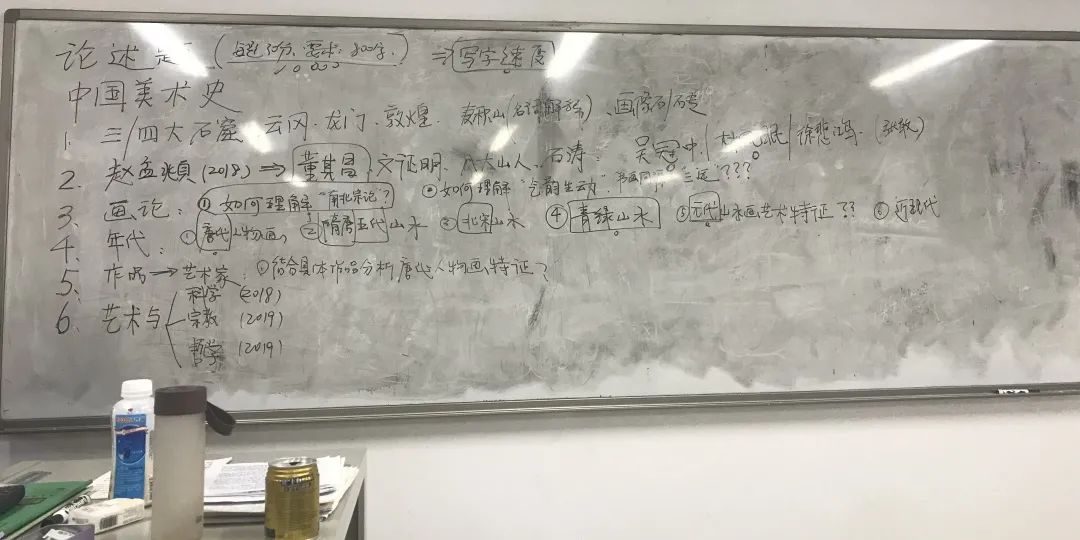 论述题（每题30分，要求：800字）⇒ 写字速度
中国美术史
1. 三/四大石窟 云冈、龙门、敦煌、麦积山(名词解释)、画像石/石专
2. 赵孟頫(2018) ⇒ 董其昌、文证明、八大山人、石涛、吴冠中/林风眠/徐悲鸿、(张敦)
3. 画论：① 如何理解"南北宗论"？ ② 如何理解"气韵生动"、书画同源 "三远"???
4. 年代：①唐代人物画 ②隋唐五代山水 ③北宋山水 ④青绿山水 ⑤元代山水画艺术特证?? ⑥近现代
5. 作品→艺术家 ①结合具体作品分析唐代人物画特证？
6. 艺术与
科学 (2018)
宗教 (2019)
哲学 (2019)